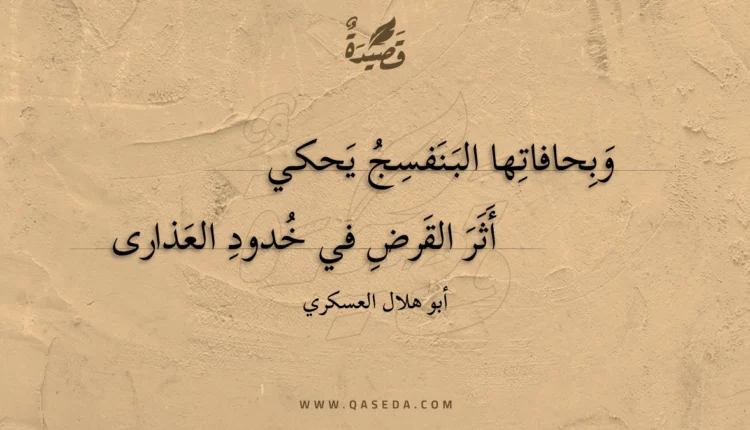 قَصِيْدَةٌ
وَبِحافاتِها البَنَفسِجُ يَحكي
أَثَرَ القَرضِ في خُدودِ العَذارى
أبو هلال العسكري
WWW.QASEDA.COM